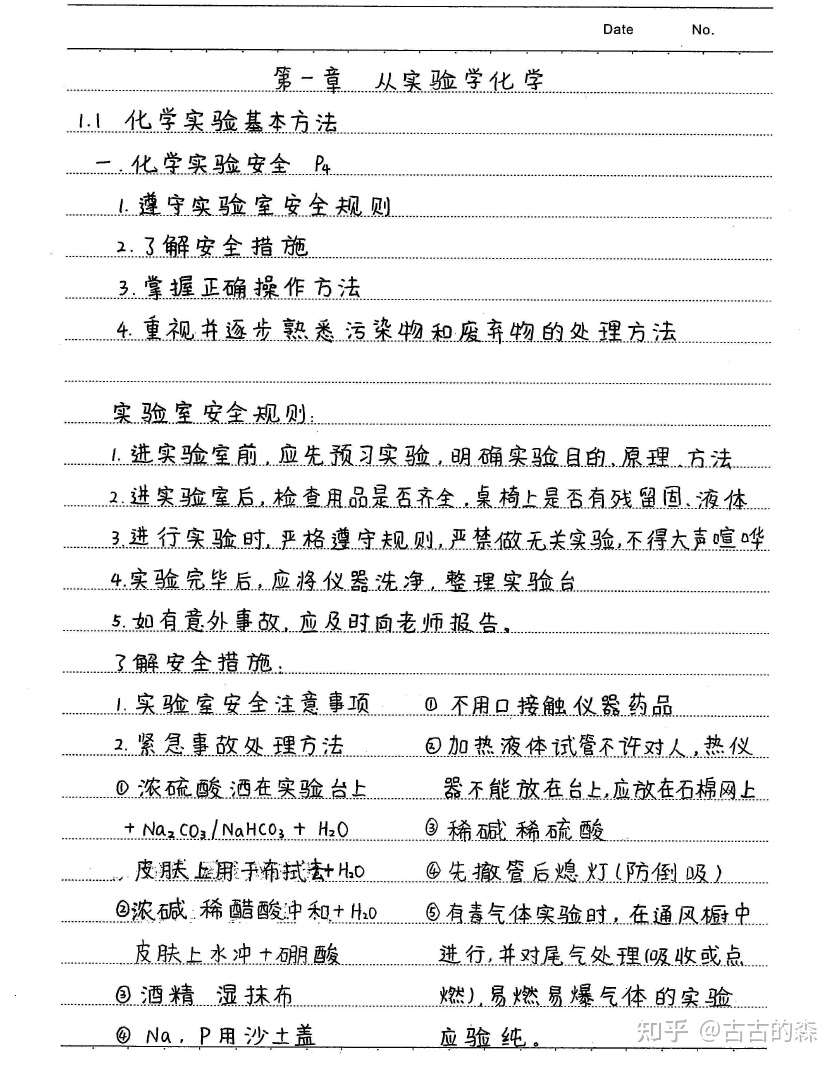 Date No.
第一章 从实验学化学
1.1 化学实验基本方法
一.化学实验安全 P4
1.遵守实验室安全规则
2.了解安全措施
3.掌握正确操作方法
4.重视并逐步熟悉污染物和废弃物的处理方法
实验室安全规则:
1.进实验室前,应先预习实验,明确实验目的、原理、方法
2.进实验室后,检查用品是否齐全,桌椅上是否有残留固、液体
3.进行实验时,严格遵守规则,严禁做无关实验,不得大声喧哗
4.实验完毕后,应将仪器洗净,整理实验台
5.如有意外事故,应及时向老师报告。
了解安全措施:
1.实验室安全注意事项
2.紧急事故处理方法
①浓硫酸洒在实验台上
+Na₂CO₃/NaHCO₃+H₂O
皮肤上用干布拭去+H₂O
②浓碱 稀醋酸中和+H₂O
皮肤上水冲+硼酸
③酒精 湿抹布
④Na,P用沙土盖
①不用口接触仪器药品
②加热液体试管不许对人,热仪
器不能放在台上,应放在石棉网上
③稀碱稀硫酸
④先撤管后熄灯(防倒吸)
⑤有毒气体实验时,在通风橱中
进行,并对尾气处理(吸收或点
燃),易燃易爆气体的实验
应验纯。
知乎 @古古的森